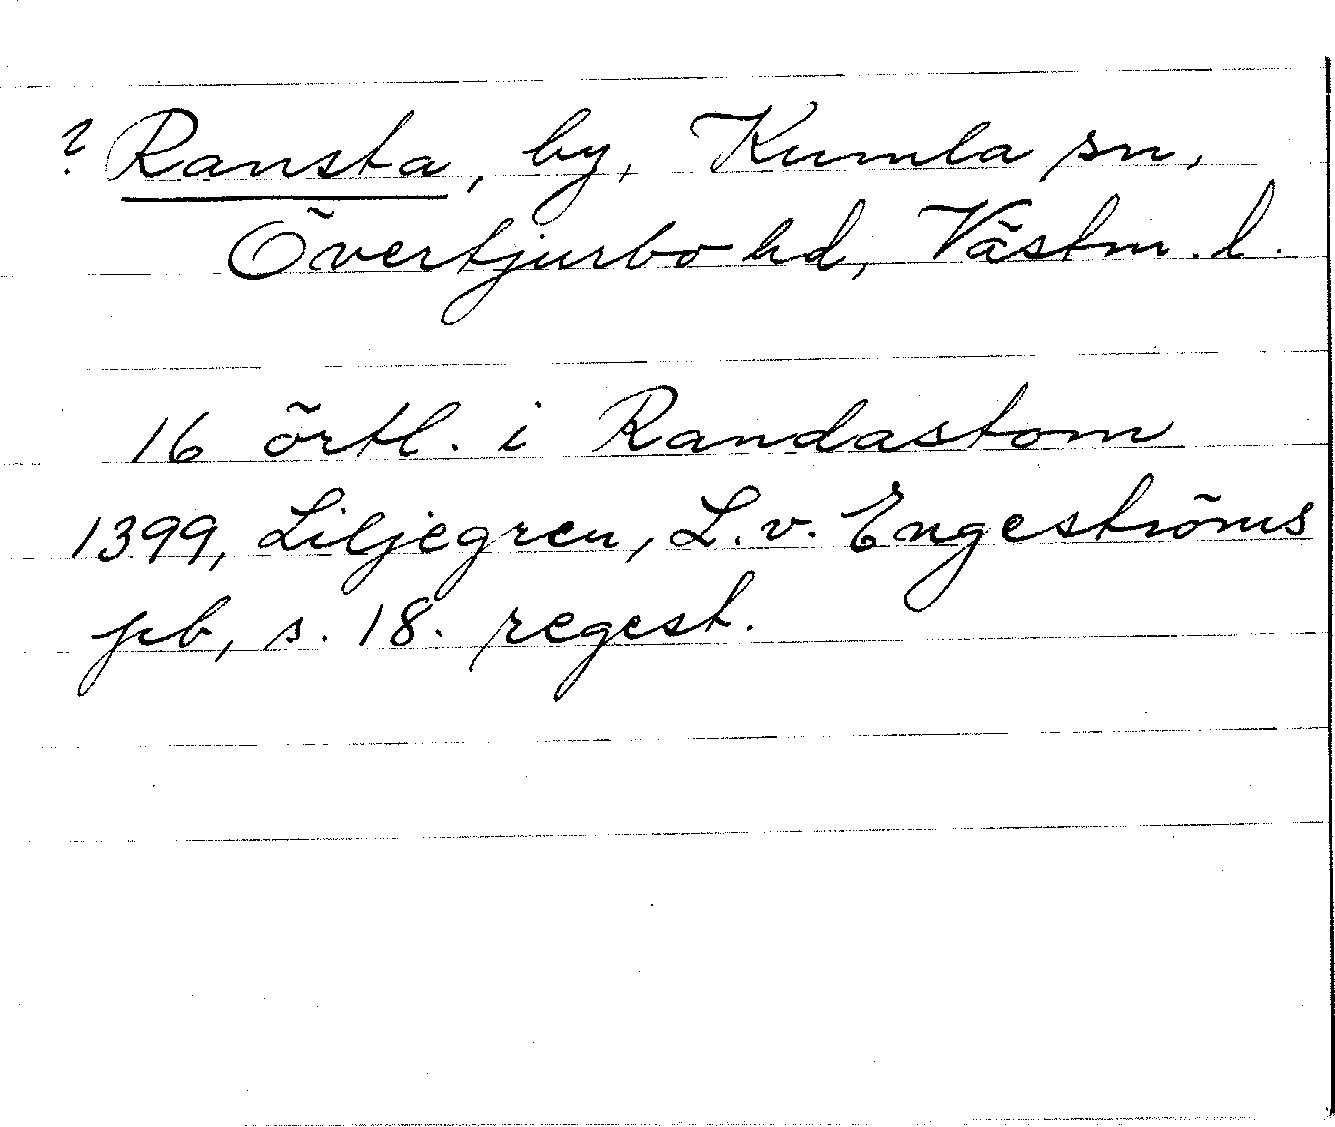 ? Ransta, by, Kumla sn,
Övertjurbo hd, Västm. l.
16 örtl. i Randastom
1399, Liljegren, L. v. Engeströms
pb, s. 18. regest.